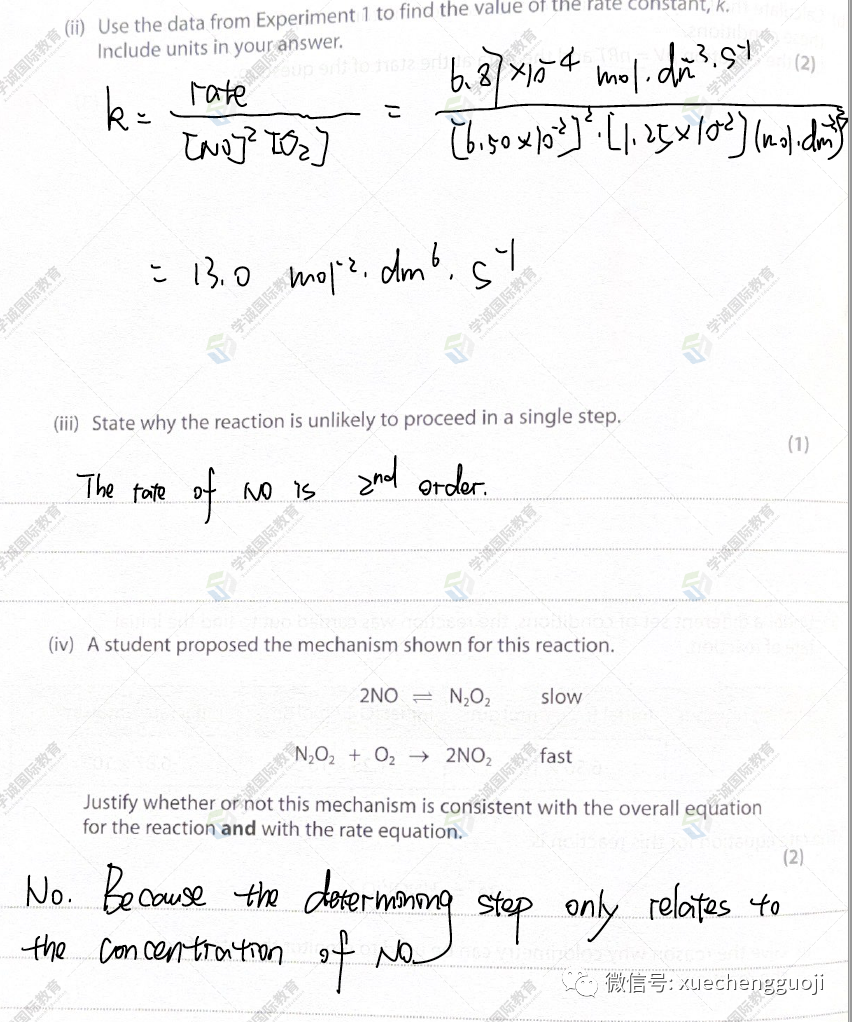 (ii) Use the data from Experiment 1 to find the value of the rate constant, k.
Include units in your answer.
(2)
k = rate / [NO]² [O₂] = 6.87 ×10⁻⁴ mol.dm⁻³.s⁻¹ / [6.50×10⁻²]².[1.25×10⁻²](mol.dm⁻³)³
= 13.0 mol⁻².dm⁶.s⁻¹
(iii) State why the reaction is unlikely to proceed in a single step.
(1)
The rate of NO is 2nd order.
(iv) A student proposed the mechanism shown for this reaction.
2NO ⇌ N₂O₂ slow
N₂O₂ + O₂ → 2NO₂ fast
Justify whether or not this mechanism is consistent with the overall equation
for the reaction and with the rate equation.
(2)
No. Because the determining step only relates to
the concentration of NO
微信号: xuechengguoji
学诚国际教育